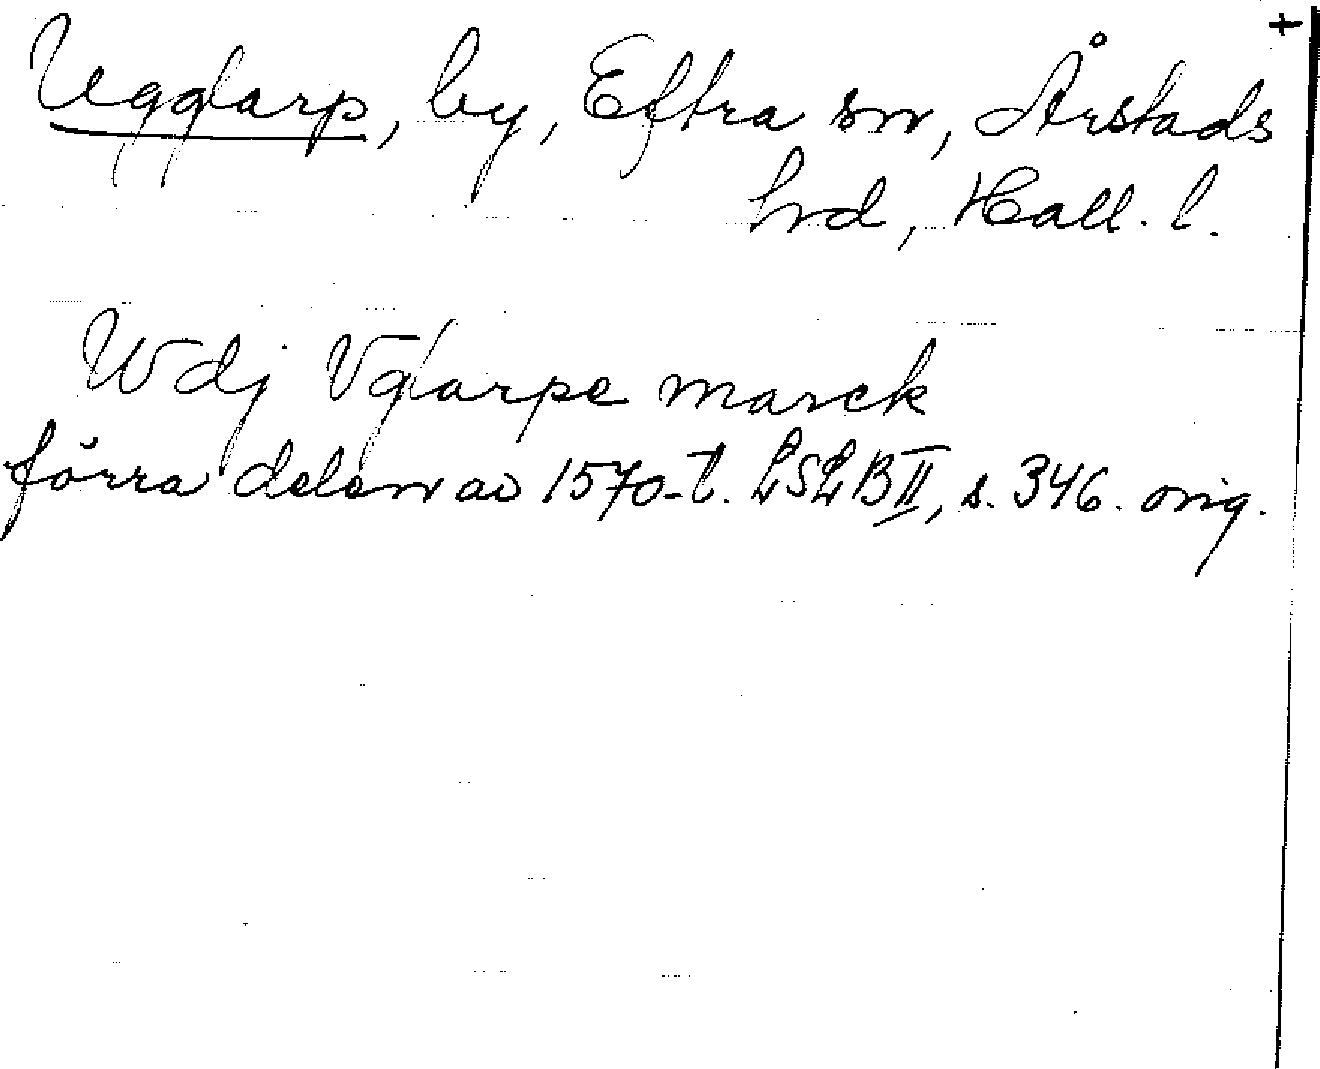 +
Ugglarp, by, Eftra sn, Årstads
hrd, Hall. l.
Wdj Vglarpe marck
förra delen av 1570-t. LSLB II, s. 346. orig.